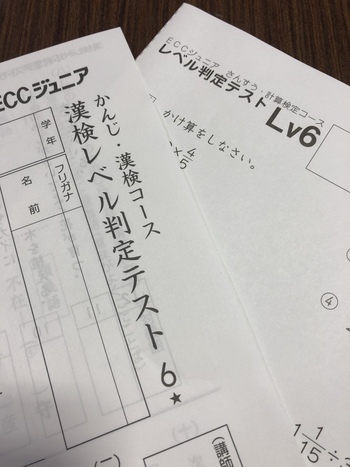 ECCジュニア
かんじ・漢検コース
漢検レベル判定テスト 6★
学年
フリガナ
名前
(講師
(一)
ECCジュニア さんすう・計算検定コース
レベル判定テスト Lv6
かけ算をしなさい。
×4/5
④
1 1/15 ÷